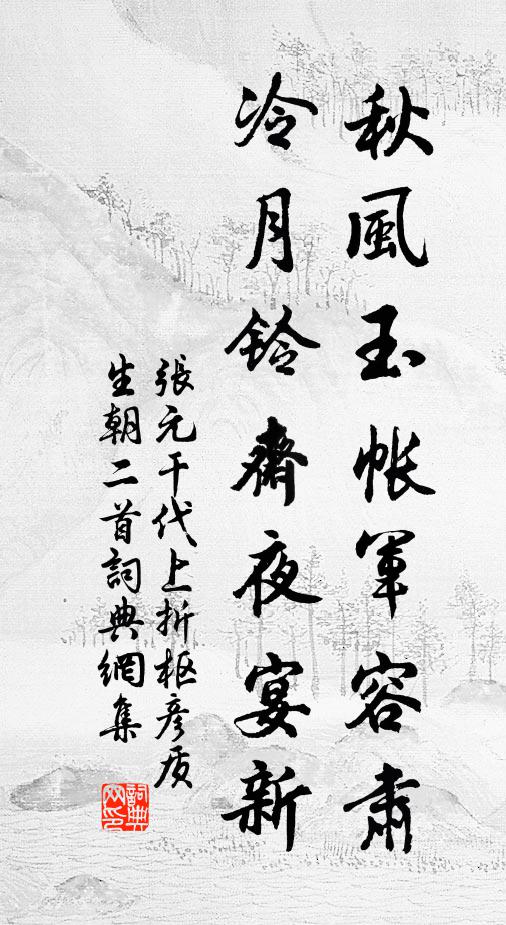 秋風玉帳軍容肅
冷月鈴齋夜宴新
張元干代上折枢彥质
生朝二首詞典網集
詞典网印